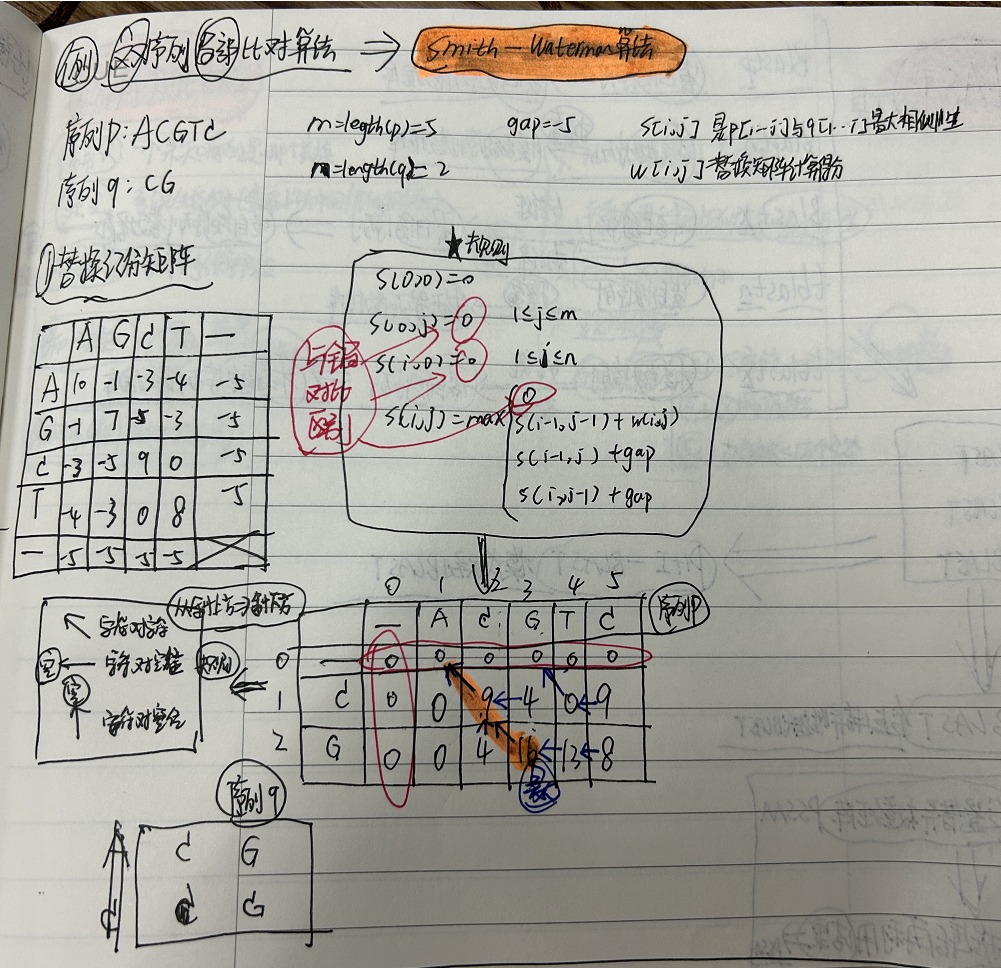 例 双序列局部比对算法 ⇒ Smith-Waterman算法
序列p: ACGTC m=legth(p)=5 gap=-5 S[i,j] 是p[1…i]与q[1…j]最大相似性
序列q: CG n=length(q)=2 w[i,j]替换矩阵计算得分
①替换记分矩阵
A G C T —
A 10 -1 -3 -4 -5
G -1 7 -5 -3 -5
C -3 -5 9 0 -5
T -4 -3 0 8 -5
— -5 -5 -5 -5
★规则
S(0,0)=0
S(0,j)=0 1≤j≤m
S(i,0)=0 1≤i≤n
S(i,j)=max
0
S(i-1,j-1)+w(i,j)
S(i-1,j)+gap
S(i,j-1)+gap
与全局
对比
区别
0 1 2 3 4 5
— A C G T C 序列p
0 — 0 0 0 0 0 0
1 C 0 0 9 4 0 9
2 G 0 0 4 16 13 8
最大
↖ 字符对字符
空 ← 字符对空位
空 ↑ 字符对空位
规则
序列q
C G
C G